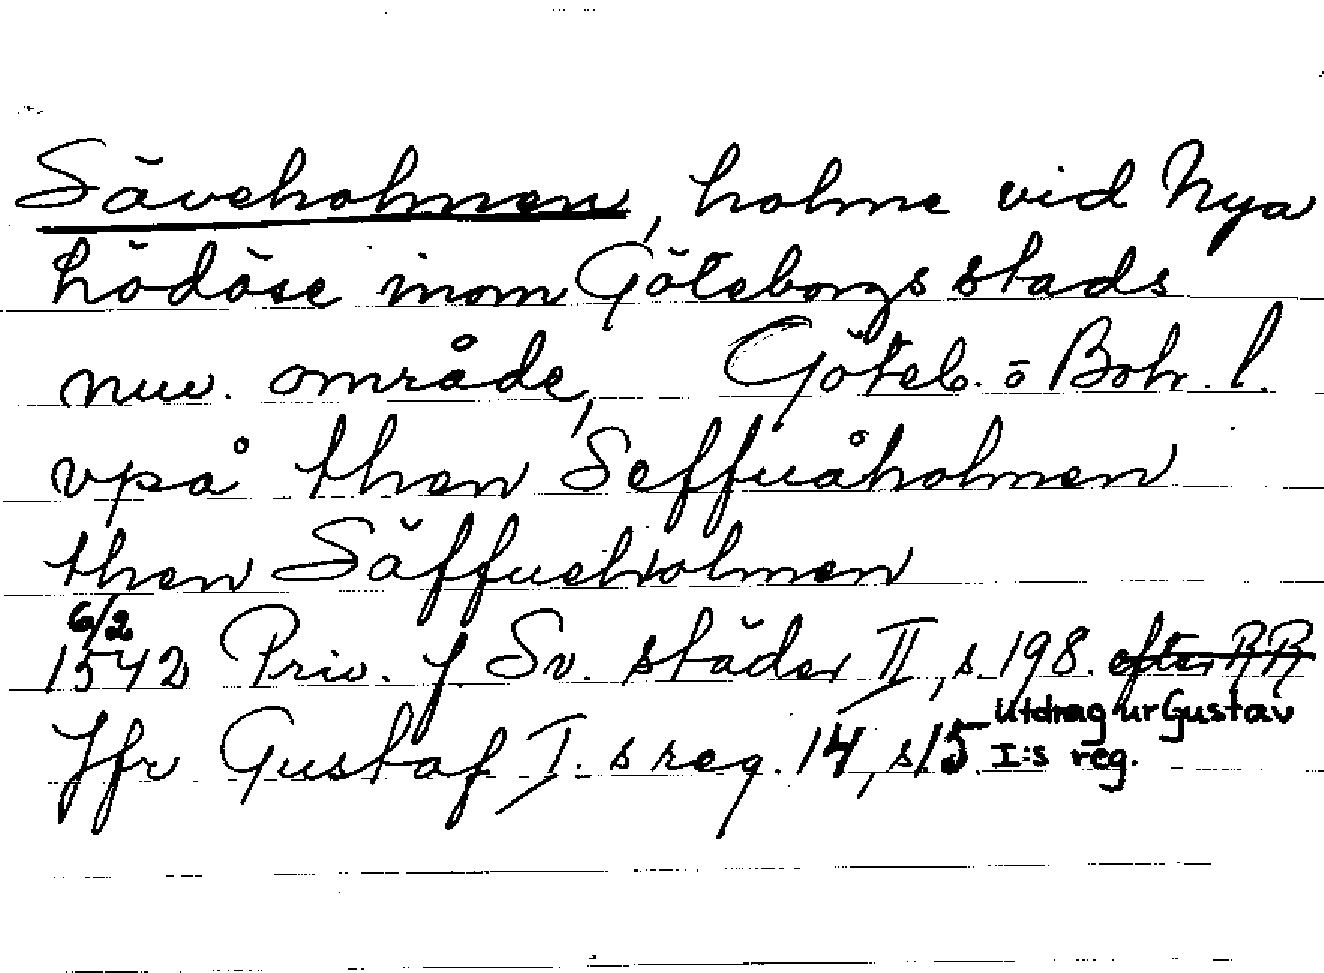 Säveholmen, holme vid Nya
Lödöse inom Göteborgs stads
nuv. område, Göteb. o Boh. l.
vpå then Seffuåholmen
then Säffueholmen
6/2
1542 Priv. f Sv. städer II, s 198. efter RR
Utdrag ur Gustav
Jfr Gustaf I. s reg. 14, s 15 I:s reg.